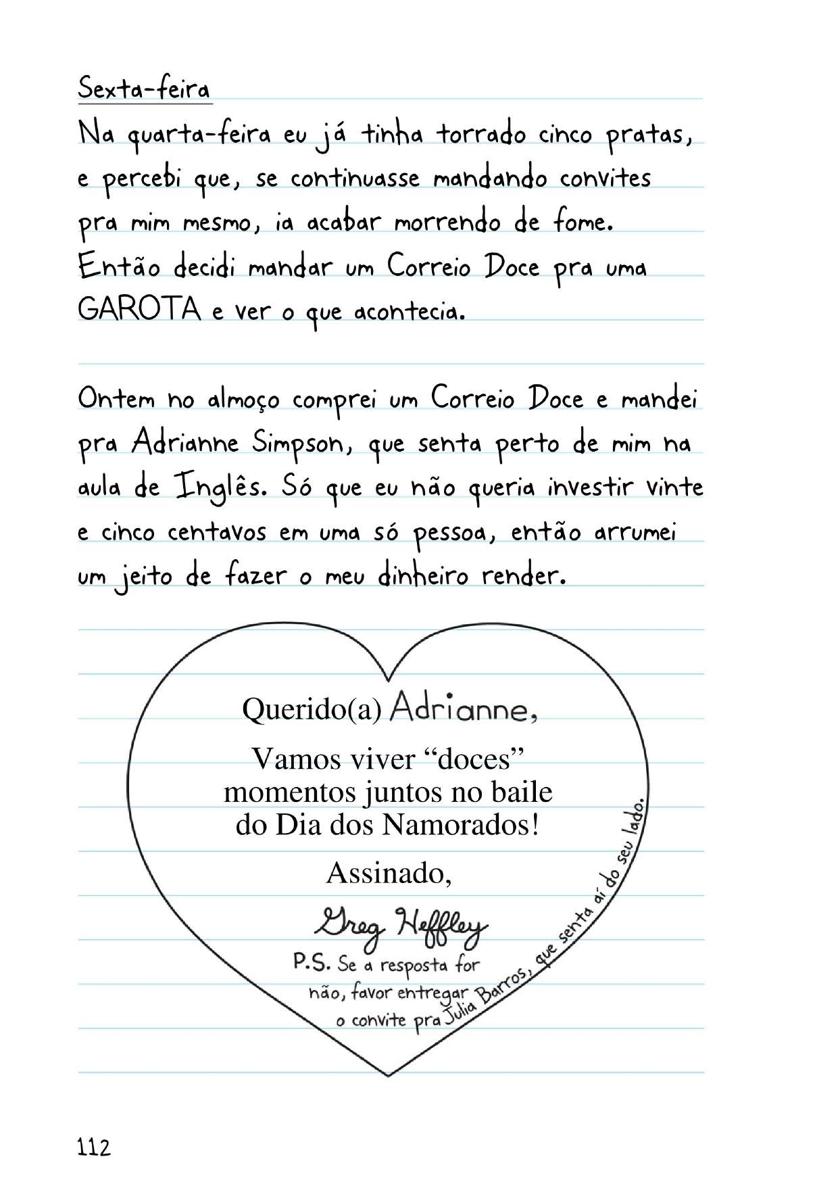 Sexta-feira
Na quarta-feira eu já tinha torrado cinco pratas,
e percebi que, se continuasse mandando convites
pra mim mesmo, ia acabar morrendo de fome.
Então decidi mandar um Correio Doce pra uma
GAROTA e ver o que acontecia.
Ontem no almoço comprei um Correio Doce e mandei
pra Adrianne Simpson, que senta perto de mim na
aula de Inglês. Só que eu não queria investir vinte
e cinco centavos em uma só pessoa, então arrumei
um jeito de fazer o meu dinheiro render.
Querido(a) Adrianne,
Vamos viver “doces”
momentos juntos no baile
do Dia dos Namorados!
Assinado,
Greg Heffley
P.S. Se a resposta for
não, favor entregar
o convite pra Julia Barros, que senta aí do seu lado.
112